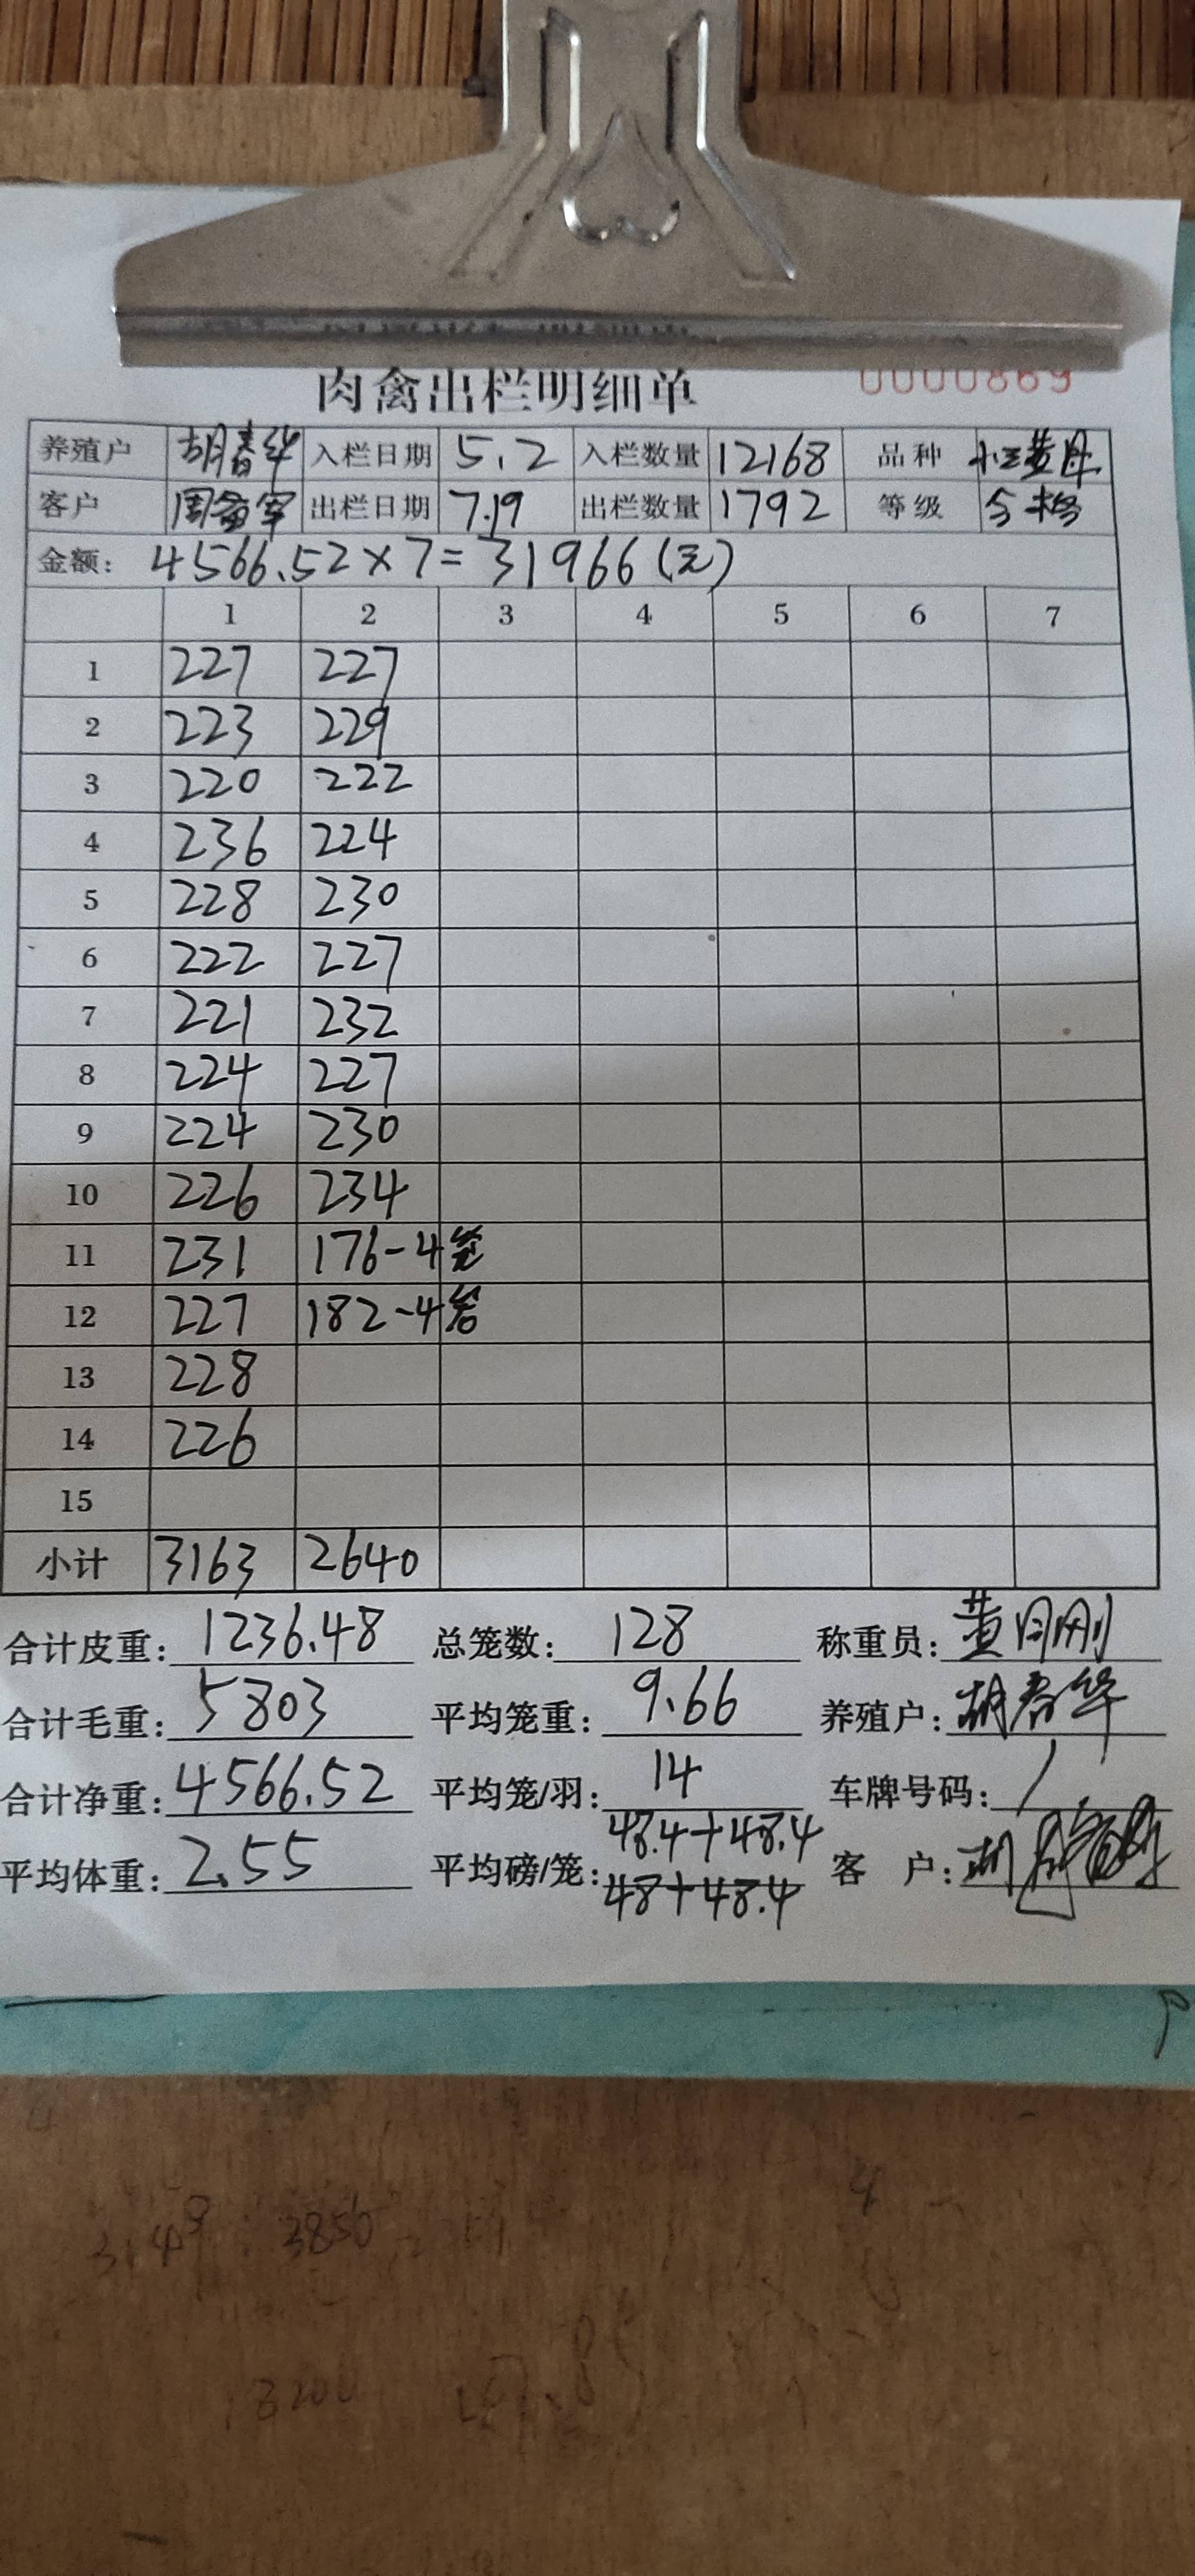 肉禽出栏明细单 0000869
养殖户 胡春华 入栏日期 5.2 入栏数量 12168 品种 小三黄母
客户 出栏日期 7.19 出栏数量 1792 等级 合格
金额: 4566.52×7=31966(元)
1 2 3 4 5 6 7
1 227 227
2 223 229
3 220 222
4 236 224
5 228 230
6 222 227
7 221 232
8 224 227
9 224 230
10 226 234
11 231 176-4笼
12 227 182-4笼
13 228
14 226
15
小计 3163 2640
合计皮重: 1236.48 总笼数: 128 称重员:
合计毛重: 5803 平均笼重: 9.66 养殖户: 胡春华
合计净重: 4566.52 平均笼/羽: 14 车牌号码: /
平均体重: 2.55 平均磅/笼: 48.4+48.4 客 户:
48+48.4